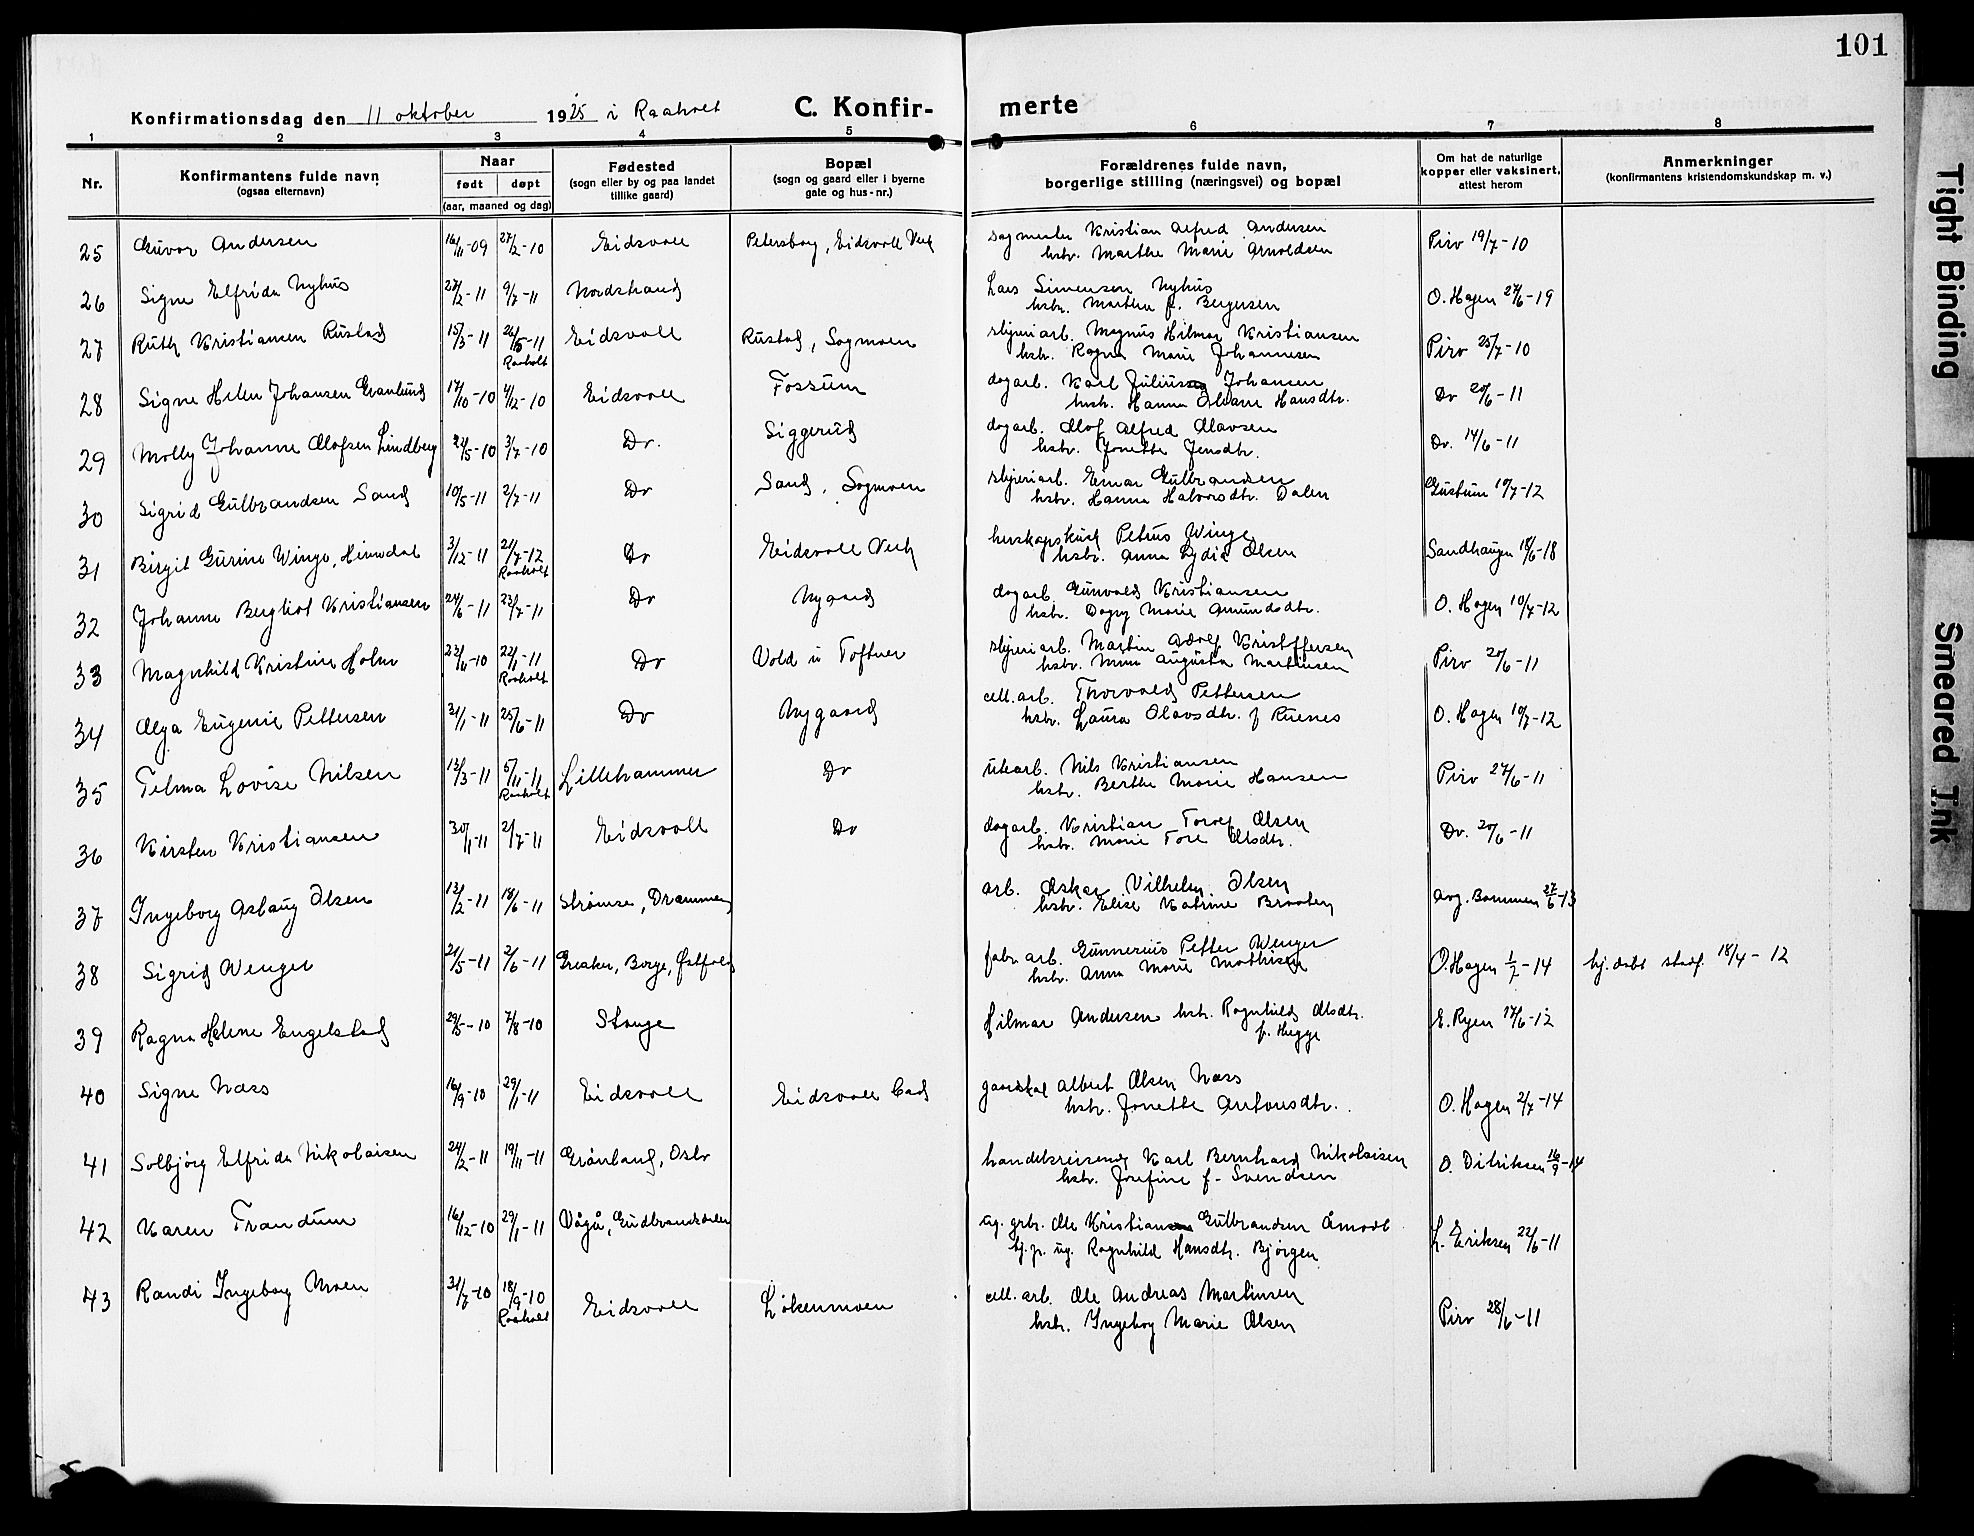 101
Konfirmationsdag den 11 oktober 1925 i Raaholt C. Konfir- merte
1 2 3 4 5 6 7 8
Nr. Konfirmantens fulde navn (ogsaa efternavn) Naar født døpt (aar, maaned og dag) Fødested (sogn eller by og paa landet tillike gaard) Bopæl (sogn og gaard eller i byerne gate og hus-nr.) Forældrenes fulde navn, borgerlige stilling (næringsvei) og bopæl Om hat de naturlige kopper eller vaksinert, attest herom Anmerkninger (konfirmantens kristendomskundskap m. v.)
25 Guvor Andersen 16/11-09 27/2-10 Eidsvoll Petersborg, Eidsvoll Verk sagmester Kristian Alfred Andersen Pirv 19/7-10
hstr. Marthe Marie Arnoldsen
26 Signe Elfrida Nyhus 27/2-11 9/7-11 Nordstrand Lars Simensen Nyhus O. Hagen 27/6-19
hstr. Marthea f. Bergersen
27 Ruth Kristiansen Rustad 15/3-11 26/5-11 Eidsvoll Rustad, Sagmoen sliperiarb. Magnus Hilmar Kristiansen Pirv 25/7-10
Raaholt hstr. Ragna Marie Johannesen
28 Signe Helen Johansen Granlund 17/10-10 4/12-10 Eidsvoll Fossum dagarb. Karl Julius Johansen Do 20/6-11
hstr. Hanna Oliane Hansdtr.
29 Molly Johanne Olofsen Lindberg 22/5-10 3/7-10 Do. Siggerud dagarb. Olof Alfred Olavsen Do. 14/6-11
hstr. Jonette Jensdtr.
30 Sigrid Gulbrandsen Sand 10/5-11 2/7-11 Do Sand, Sagmoen sliperiarb. Einar Gulbrandsen Gustum 10/7-12
hstr. Hanna Halvorsdtr. Dalen
31 Birgit Gurine Winge, Himdal 3/12-11 21/7-12 Do Eidsvoll Verk herskapskusk Petrus Winge Sandhaugen 18/6-18
Raaholt hstr. Anna Lydia Olsen
32 Johanne Bergliot Kristiansen 24/6-11 23/7-11 Do Nygaard dagarb. Gunvald Kristiansen O. Hagen 10/7-12
hstr. Dagny Marie Amundsdtr.
33 Magnhild Kristine Holm 23/11-10 22/1-11 Do Vold u Toftner sliperiarb. Martin Adolf Kristoffersen Pirv 20/6-11
Raaholt hstr. Mina Augusta Martinsen
34 Olga Eugenie Pettersen 31/1-11 25/6-11 Do Nygaard cell. arb. Thorvald Pettersen O. Hagen 10/7-12
hstr. Laura Olavsdtr. f Ruenes
35 Telma Lovise Nilsen 13/3-11 5/11-11 Lillehammer Do utearb. Nils Kristiansen Pirv 27/6-11
Raaholt hstr. Berthe Marie Hansen
36 Kirsten Kristiansen 30/1-11 2/7-11 Eidsvoll Do dagarb. Kristian Torolf Olsen Do. 20/6-11
hstr. Marie Tore Olsdtr.
37 Ingeborg Aslaug Olsen 13/2-11 18/6-11 Strømsø, Drammen arb. Oskar Vilhelm Olsen Avg. Bommen 27/6-13
hstr. Elise Katrine Braaten
38 Sigrid Wenger 21/5-11 2/6-11 Greaker, Borge, Østfold fabr. arb. Gunnerius Petter Wenger O. Hagen 1/7-14 hj. døbt stadf. 18/4-12
hstr. Anna Marie Mathisen
39 Ragna Helene Engelstad 29/5-10 7/8-10 Stange Hilmar Andersen hstr. Ragnhild Olsdtr. E. Ryen 17/6-12
f. Hegge
40 Signe Næss 16/9-10 29/1-11 Eidsvoll Eidsvoll Bad Albert Olsen Næss O. Hagen 2/7-14
hstr. Jonette Antonsdtr.
41 Solbjørg Elfrida Nikolaisen 24/2-11 19/11-11 Grønland, Oslo handelsreisende Karl Bernhard Nikolaisen O. Ditriksen 16/9-14
hstr. Josefine f. Svendsen
42 Karen Trandum 16/12-10 29/1-11 Vågå, Gudbrandsdalen ug. grbr. Ole Kristian Gulbrandsen Åmodt L. Eriksen 22/6-11
tj. p. ug. Ragnhild Hansdtr. Bjørgen
43 Randi Ingeborg Moen 31/7-10 18/9-10 Eidsvoll Løkenmoen cell. arb. Ole Andreas Martinsen Pirv 28/6-11
Raaholt hstr. Ingeborg Marie Olsen
Tight Binding
Smeared Ink